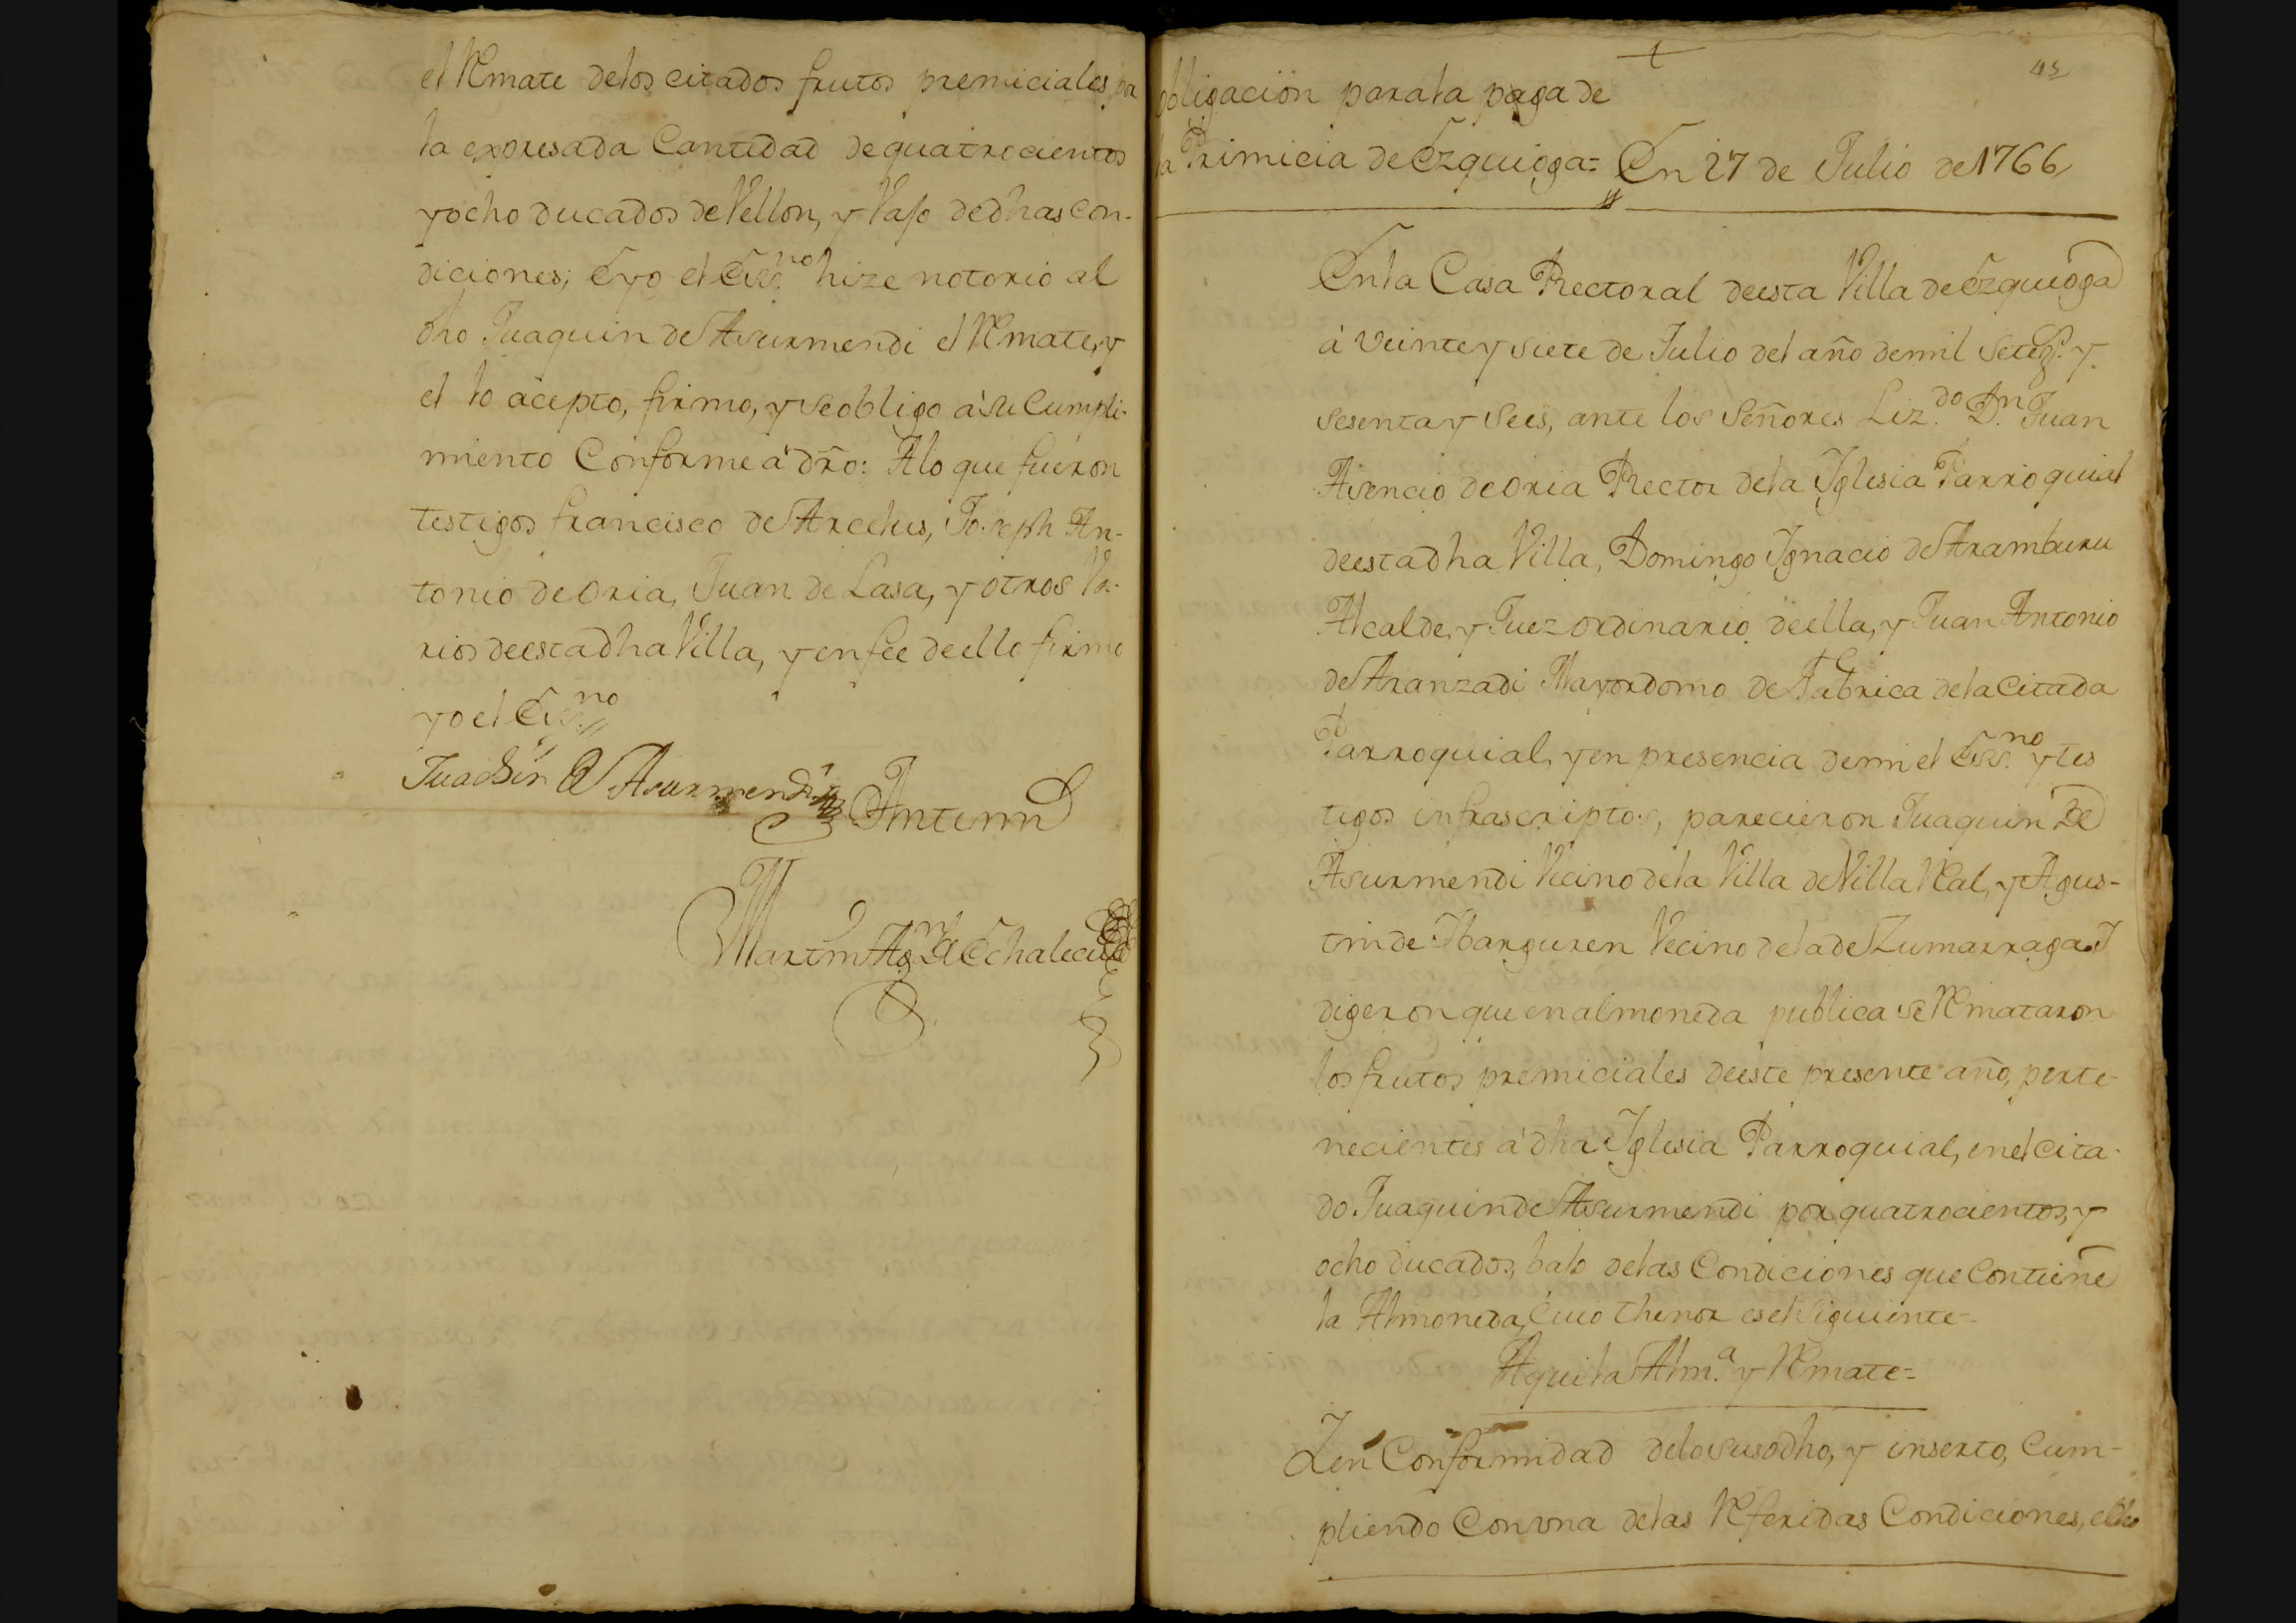 el Rmate delos citados frutos premiciales por
la expresada Cantidad de quatrocientos
y ocho ducados de Vellon, y vajo de dhas con-
diciones; é yo el Ess.no hize notorio al
dho Juaquin de Asurmendi el Rmate, y
el lo acepto, firmo, y se obligo à su Cumpli-
miento Conforme à dr̃o: A lo que fueron
testigos francisco de Arcelus, Joseph An-
tonio de Oria, Juan de Lasa, y otros Va-
rios de esta dha Villa, y en fee de ello firme
yo el Ess.no
Juachin de Asurmendi
Antemi
Martin Ag.n de Echalecu
45
obligacion para la paga de
la Primicia de Ezquioga= En 27 de Julio de 1766
En la Casa Rectoral de esta Villa de Ezquioga
à veinte y siete de Julio del año de mil setez.s y
sesenta y seis, ante los Señores Liz.do D.n Juan
Asencio de Oria Rector dela Iglesia Parroquial
de esta dha Villa, Domingo Ignacio de Aramburu
Alcalde, y Juez ordinario de ella, y Juan Antonio
de Aranzadi Mayordomo de Fabrica dela Citada
Parroquial, y en presencia de mi el Ess.no y tes
tigos infrascriptos, parecieron Juaquin de
Asurmendi Vecino dela Villa de Villa Rl, y Agus-
tin de Ibarguren Vecino dela de Zumarraga I
digeron que en almoneda publica se Rmataron
los frutos premiciales de este presente año, perte-
necientes à dha Iglesia Parroquial, en el cita-
do Juaquin de Asurmendi por quatrocientos, y
ocho ducados, bajo delas Condiciones que Contiene
la Almoneda, Cuio thenor es el Siguiente=
Aqui la Alm.a y Rmate=
Y en Conformidad delo susodho, y inserto, Cum-
pliendo Con una delas Rferidas Condiciones, el dho